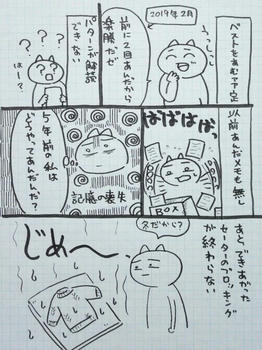 2019年2月
ベストをあむ予定
うっしっし
前に2回あんだから
楽勝だぜ
パターンが解読
できない
？？？
はー？
以前あんだメモも無し
ばばばばっ
BOX
5年前の私は
どうやってあんだんだ？
記憶の喪失
あと、できあがった
セーターのブロッキング
が終わらない
冬だから？
じめ〜